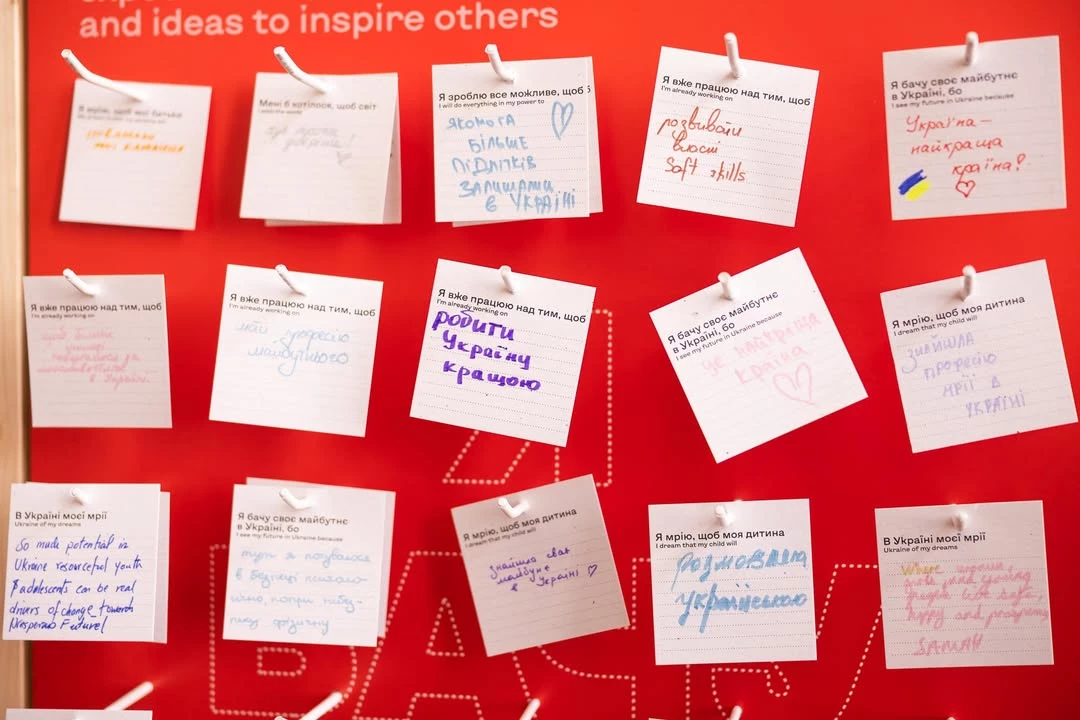 and ideas to inspire others
Я мрію, щоб мої батьки
Мені б хотілося, щоб світ
Я зроблю все можливе, щоб
I will do everything in my power to
ЯКОМОГА
БІЛЬШЕ
ПІДЛІТКІВ
ЗАЛИШАЛИ
В УКРАЇНІ
Я вже працюю над тим, щоб
I'm already working on
розвивати
власні
Soft skills
Я бачу своє майбутнє
в Україні, бо
I see my future in Ukraine because
Україна –
найкраща
країна!
Я вже працюю над тим, щоб
I'm already working on
щоб більше
в Україні.
Я вже працюю над тим, щоб
I'm already working on
професію
майбутнього
Я вже працюю над тим, щоб
I'm already working on
робити
Україну
кращою
Я бачу своє майбутнє
в Україні, бо
I see my future in Ukraine because
це найкраща
країна
Я мрію, щоб моя дитина
I dream that my child will
ЗНАЙШЛА
ПРОФЕСІЮ
МРІЇ В
УКРАЇНІ
В Україні моєї мрії
Ukraine of my dreams
So much potential in
Ukraine resourceful youth
& adolescents can be real
drivers of change towards
Prosperous Future!
Я бачу своє майбутнє
в Україні, бо
I see my future in Ukraine because
тут я почуваюся
в безпеці
фізичну
Я мрію, щоб моя дитина
I dream that my child will
знайшла своє
майбутнє в
Україні
Я мрію, щоб моя дитина
I dream that my child will
розмовляла
українською
В Україні моєї мрії
Ukraine of my dreams
Where women,
girls and young
people live safe,
happy and prospering